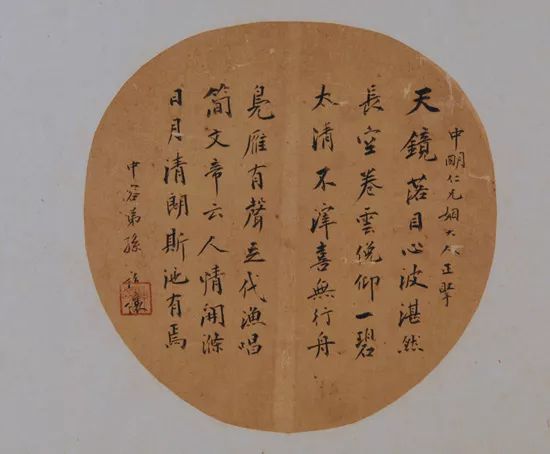 中明仁兄姻大人正
天鏡落目心波湛然
長空卷雲俛仰一碧
太清不滓喜無行舟
鳧雁有聲互代漁唱
簡文帝云人情開滌
日月清朗斯池有焉
中容弟孫詒讓